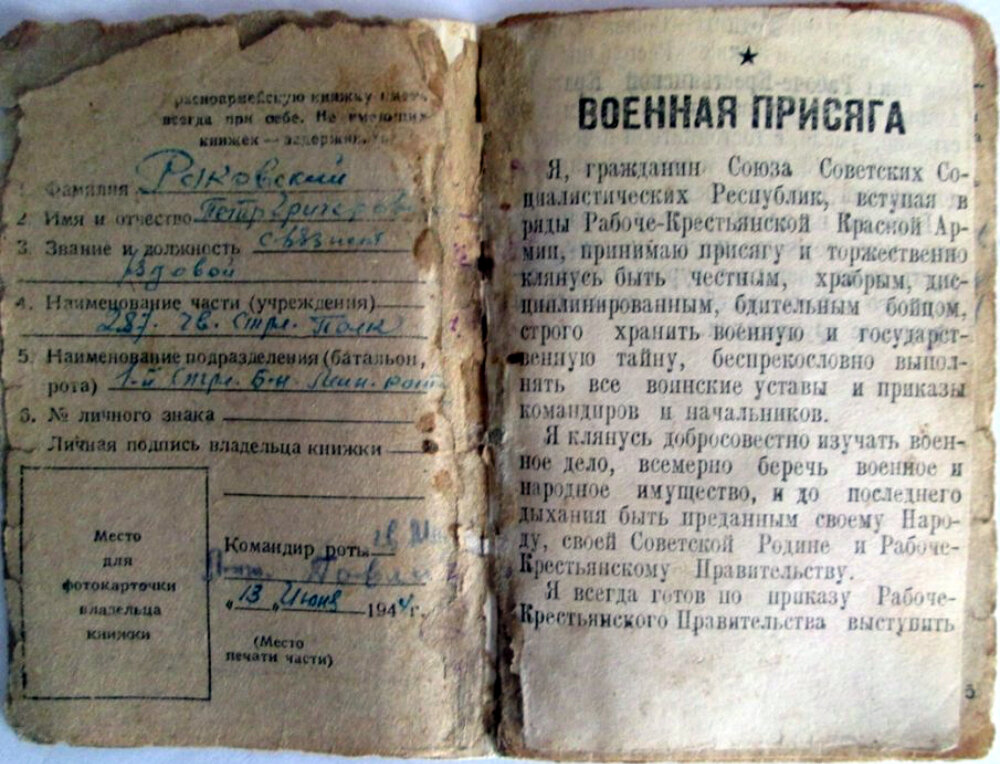 расноармейскую книжку иметь
всегда при себе. Не имеющих
книжек — задерживать
1. Фамилия Раковский
2. Имя и отчество Петр
3. Звание и должность связист
Ездовой
4. Наименование части (учреждения)
287. гв. Стрл. Полк
5. Наименование подразделения (батальон,
рота) 1-й Стрл. Б-н Мин. рота
6. № личного знака
Личная подпись владельца книжки
Место
для
фотокарточки
владельца
книжки
Командир роты гв
„13 „ Июня 1944 г.
(Место
печати части)
ВОЕННАЯ ПРИСЯГА
Я, гражданин Союза Советских Со-
циалистических Республик, вступая в
ряды Рабоче-Крестьянской Красной Ар-
мии, принимаю присягу и торжественно
клянусь быть честным, храбрым, дис-
циплинированным, бдительным бойцом,
строго хранить военную и государст-
венную тайну, беспрекословно выпол-
нять все воинские уставы и приказы
командиров и начальников.
Я клянусь добросовестно изучать воен-
ное дело, всемерно беречь военное и
народное имущество, и до последнего
дыхания быть преданным своему Наро-
ду, своей Советской Родине и Рабоче-
Крестьянскому Правительству.
Я всегда готов по приказу Рабоче-
Крестьянского Правительства выступить
5